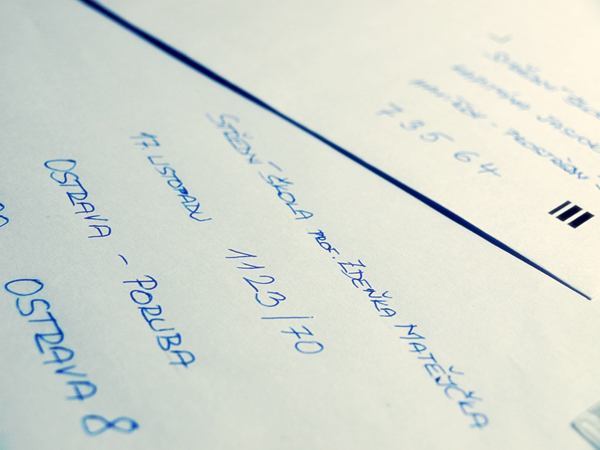 STŘEDNÍ ŠKOLA PROF. ZDEŇKA MATĚJČKA
17. LISTOPADU 1123/70
OSTRAVA - PORUBA
OSTRAVA 8
STŘEDNÍ
HAVÍŘOV - PROSTŘEDNÍ
735 64